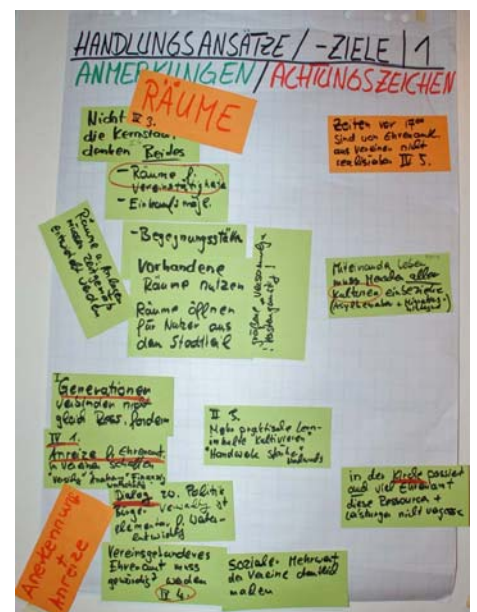 HANDLUNGSANSÄTZE / -ZIELE | 1
ANMERKUNGEN / ACHTUNGSZEICHEN
RÄUME
Nicht IV 3.
die Kernstadt
denken Beides
- Räume f.
Vereinstätigkeit
- Einkaufsmögl.
Zeiten vor 17⁰⁰
sind von Ehrenamt
aus Vereinen nicht
realisierbar IV 5.
Räume u.
müssen zeitgemäß
entwickelt werden
- Begegnungsstätte
Vorhandene
Räume nutzen
Räume öffnen
für Nutzer aus
dem Stadtteil
größere
! kostengünstig !
Miteinander Leben
muss Menschen aller
Kulturen einbeziehen
(Asylbewerber + Migrations-
I
Generationen
verbinden nicht
gleich Bess. fordern
IV 1.
Anreize f. Ehrenamt
in Vereinen schaffen
II 3.
Mehr praktische Lern-
inhalte "kultivieren"
"Handwerk stärken"
Dialog zw. Politik
Bürger Verwaltg ist
elementar f. Weiter-
entwicklg
in der Kirche passiert
auch viel Ehrenamt
diese Ressource +
Leistungen nicht vergessen
Anerkennung
+
Anreize
Vereinsgebundenes
Ehrenamt muss
gewürdigt werden
IV 4.
Sozialer Mehrwert
der Vereine deutlich
machen